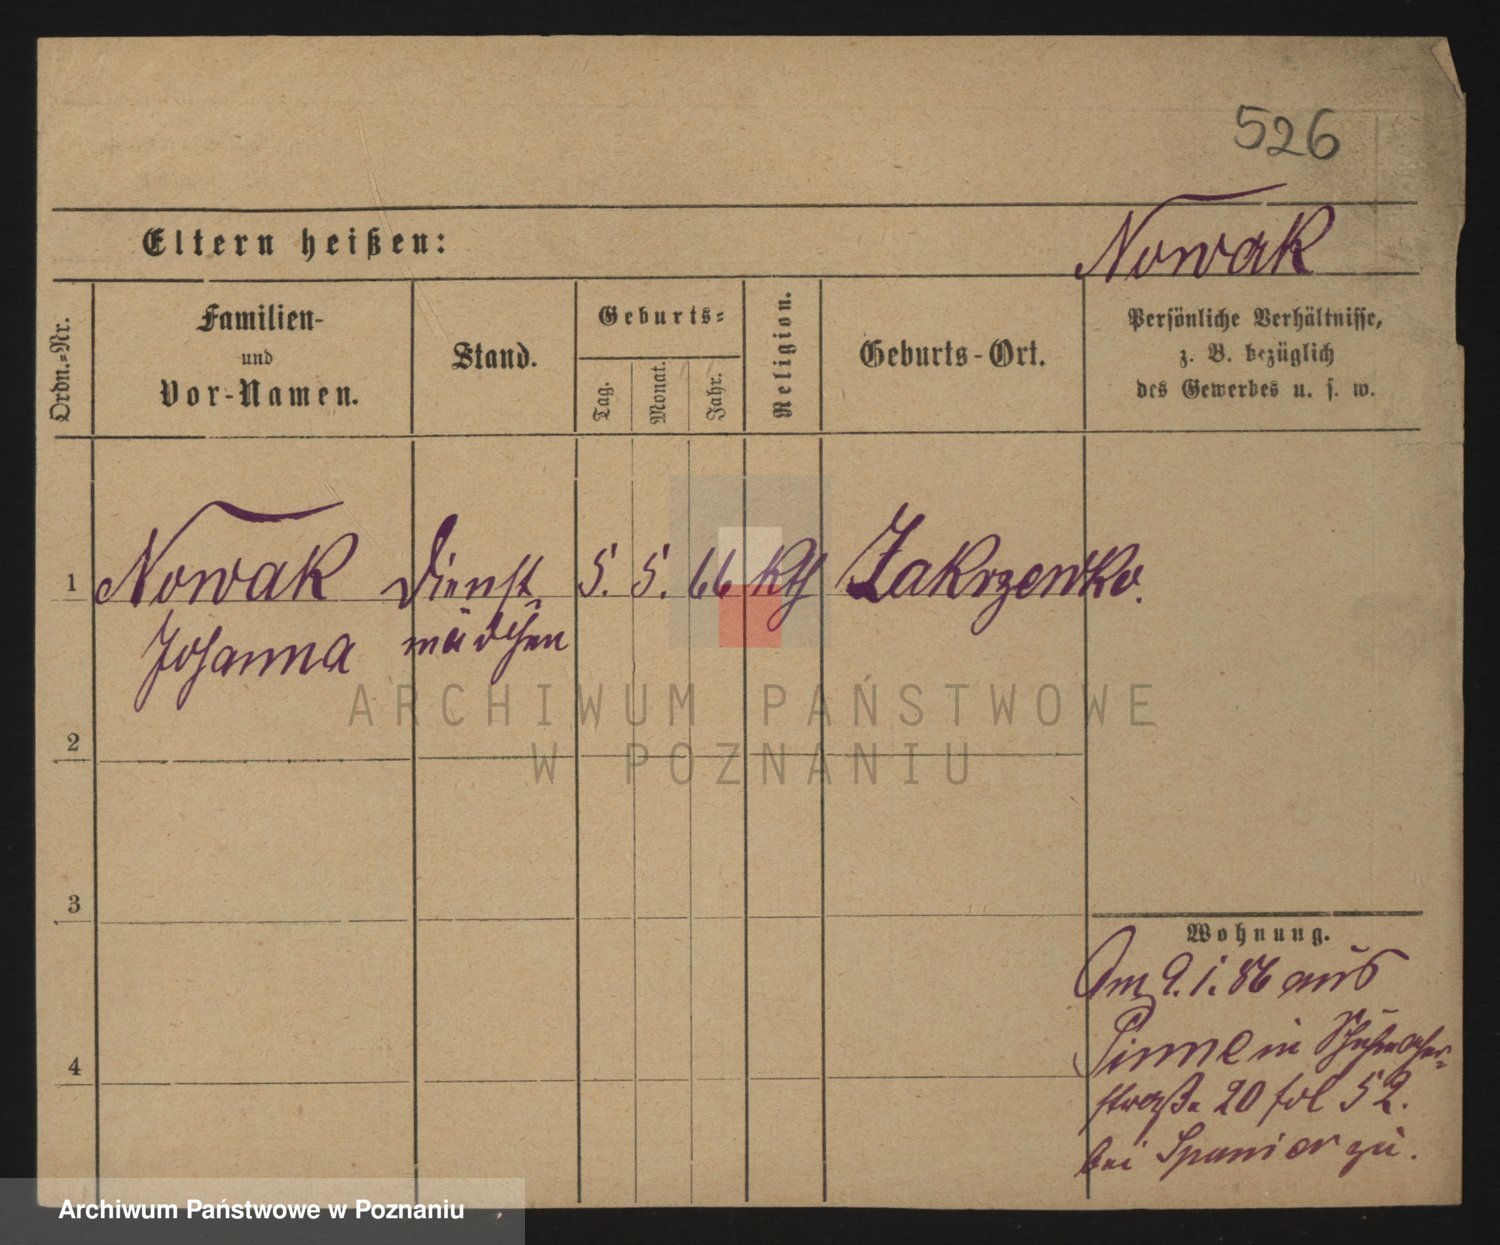 526
Eltern heißen:
Nowak
Ordn.=Nr.
Familien-
und
Vor-Namen.
Stand.
Geburts=
Tag.
Monat.
Jahr.
Religion.
Geburts-Ort.
Persönliche Verhältnisse,
z. B. bezüglich
des Gewerbes u. s. w.
1
Nowak Dienst 5. 5. 66 Kth Zakrzewko.
Johanna mädchen
ARCHIWUM PAŃSTWOWE
W POZNANIU
2
3
4
Wohnung.
Am 9. 1. 86 aus
Pinne in Schuhmacher=
straße 20 fol 52.
bei Spanier zu.
Archiwum Państwowe w Poznaniu